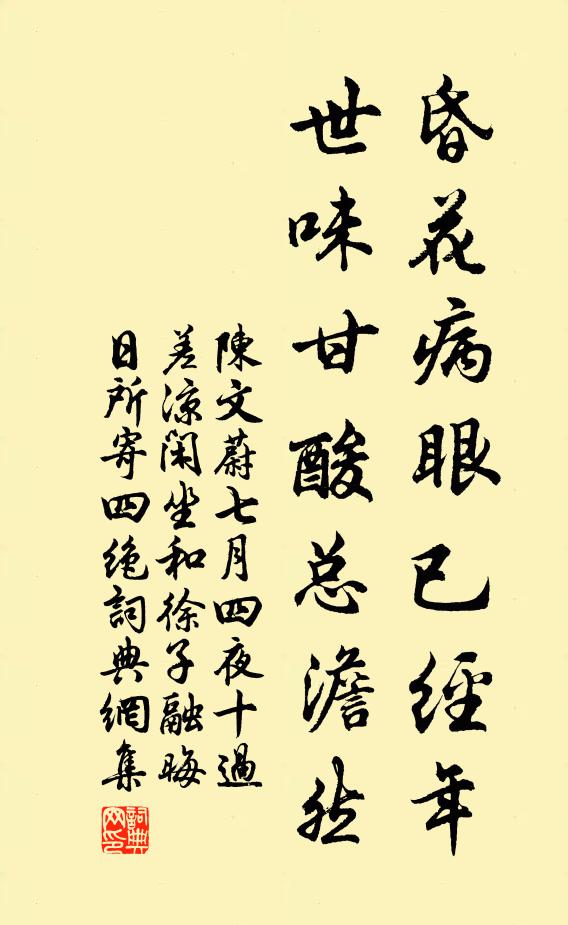 昏花病眼已經年
世味甘酸总澹然
陳文蔚七月四夜十過
差涼閑坐和徐子融晦
日所寄四绝詞典網集
詞典
网印